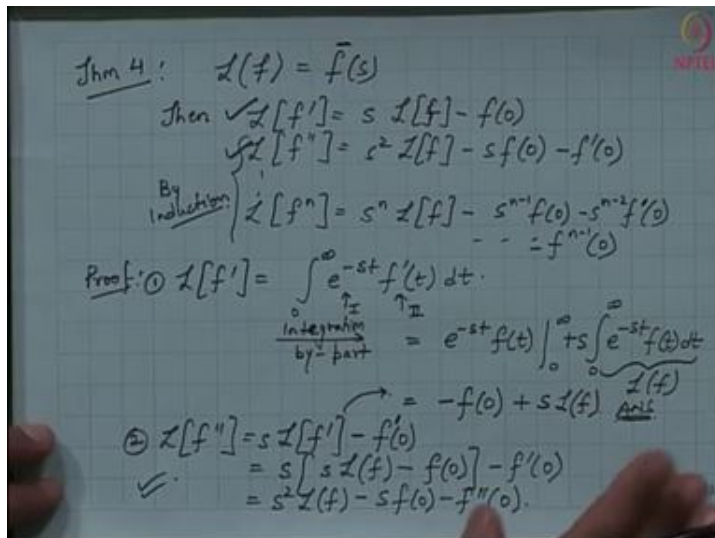 NPTEL
Thm 4: L(f) = f̄(s)
Then ✓ L[f'] = s L[f] - f(0)
✓ L[f''] = s² L[f] - s f(0) - f'(0)
By Induction L[fⁿ] = sⁿ L[f] - sⁿ⁻¹ f(0) - sⁿ⁻² f'(0)
- - = fⁿ⁻¹(0)
Proof: ① L[f'] = ∫₀^∞ e^{-st} f'(t) dt.
↑I ↑II
integration by-part = e^{-st} f(t) |₀^∞ + s ∫₀^∞ e^{-st} f(t) dt
L(f)
= -f(0) + s L(f) Ans
② L[f''] = s L[f'] - f'(0)
= s[s L(f) - f(0)] - f'(0)
✓. = s² L(f) - s f(0) - f''(0).